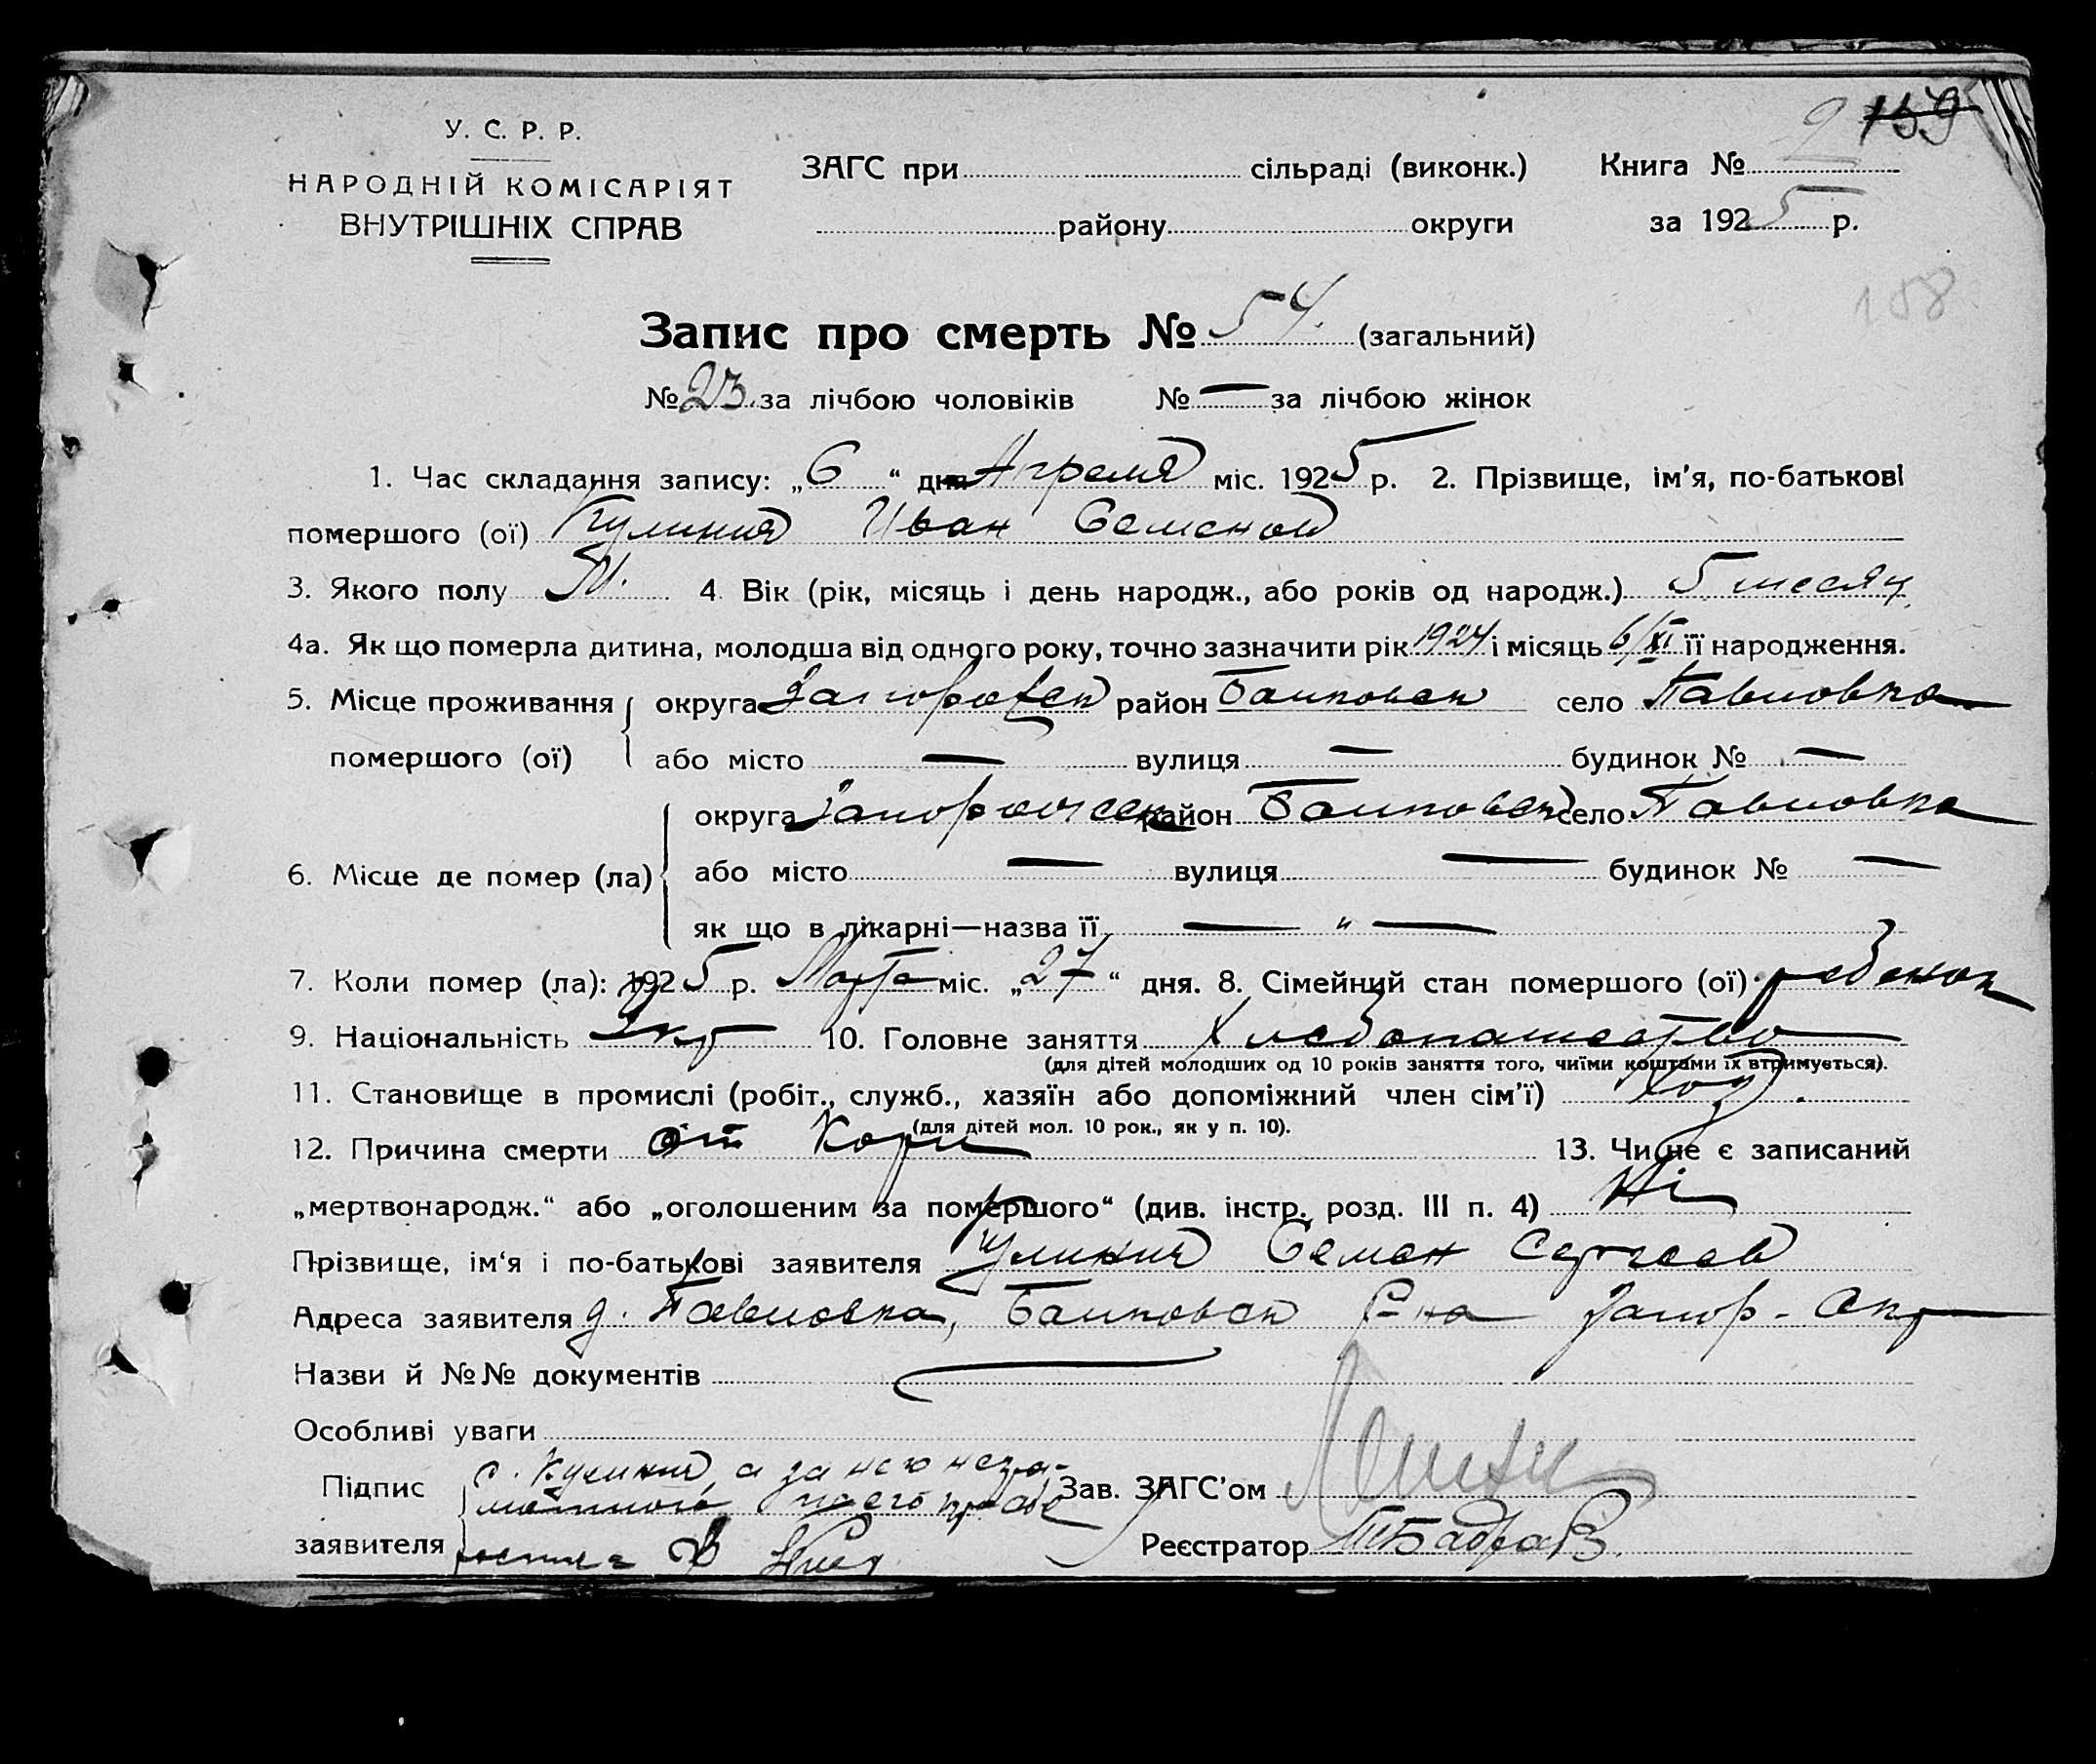 9 159
У. С. Р. Р.
НАРОДНІЙ КОМІСАРІЯТ
ВНУТРІШНІХ СПРАВ
ЗАГС при сільраді (виконк.)
району округи
Книга №
за 1925 р.
158
Запис про смерть № 54. (загальний)
№ 23 за лічбою чоловіків № — за лічбою жінок
1. Час складання запису: „6“ дня Апреля міс. 1925 р. 2. Прізвище, ім'я, по-батькові
помершого (ої) Кулинич Иван Семенов
3. Якого полу М. 4. Вік (рік, місяць і день народж., або років од народж.) 5 месяц
4а. Як що померла дитина, молодша від одного року, точно зазначити рік 1924 і місяць 6/XI її народження.
5. Місце проживання округа Запорожск район Балковск село Павловка
помершого (ої) або місто — вулиця — будинок № —
округа Запорожск район Балковск село Павловка
6. Місце де помер (ла) або місто — вулиця — будинок № —
як що в лікарні—назва її — " —
7. Коли помер (ла): 1925 р. Марта міс. „27“ дня. 8. Сімейний стан помершого (ої) ребенок
9. Національність Укр 10. Головне заняття Хлебопашество
(для дітей молодших од 10 років заняття того, чиїми коштами їх втримується).
11. Становище в промислі (робіт., служб., хазяїн або допоміжний член сім'ї) Хоз.
(для дітей мол. 10 рок., як у п. 10).
12. Причина смерти от Кори 13. Чи не є записаний
„мертвонародж.“ або „оголошеним за помершого“ (див. інстр. розд. III п. 4) Ні
Прізвище, ім'я і по-батькові заявителя Кулинич Семен Сергеев
Адреса заявителя д. Павловка, Балковск Р-на Запор. Окр
Назви й №№ документів
Особливі уваги
Підпис С. Кулинич, а за него
заявителя
Зав. ЗАГС'ом
Реєстратор